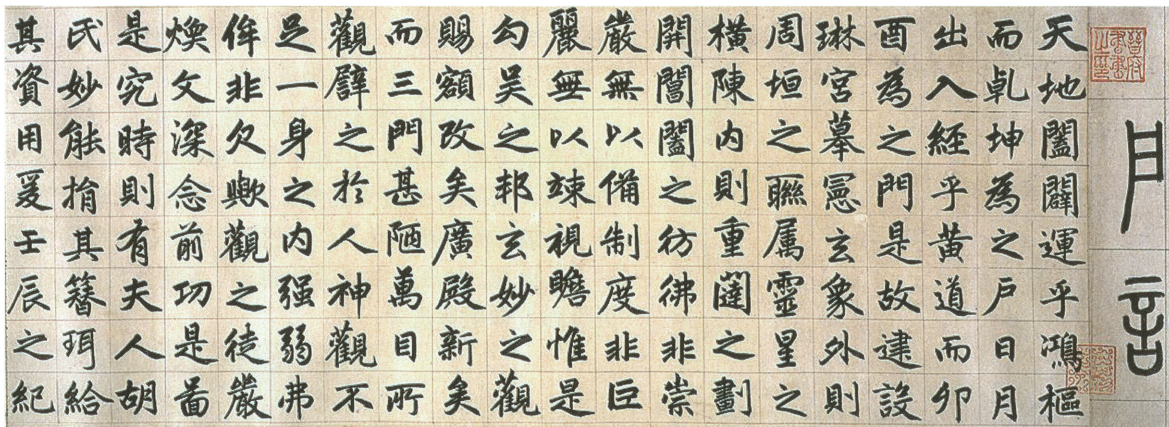 天地闔闢運乎鴻樞
而乹坤為之戶日月
出入經乎黃道而卯
酉為之門是故建設
琳宮摹憲玄象外則
周垣之聯属靈星之
橫陳内則重闥之劃
開閶闔之彷彿非崇
嚴無以備制度非巨
麗無以竦視瞻惟是
勾吴之邦玄妙之觀
賜額改矣廣殿新矣
而三門甚陋萬目所
觀譬之於人神觀不
足一身之内强弱弗
侔非欠歟觀之徒嚴
煥文深念前功是啚
是究時則有夫人胡
氏妙能捐其簪珥給
其資用爰壬辰之紀